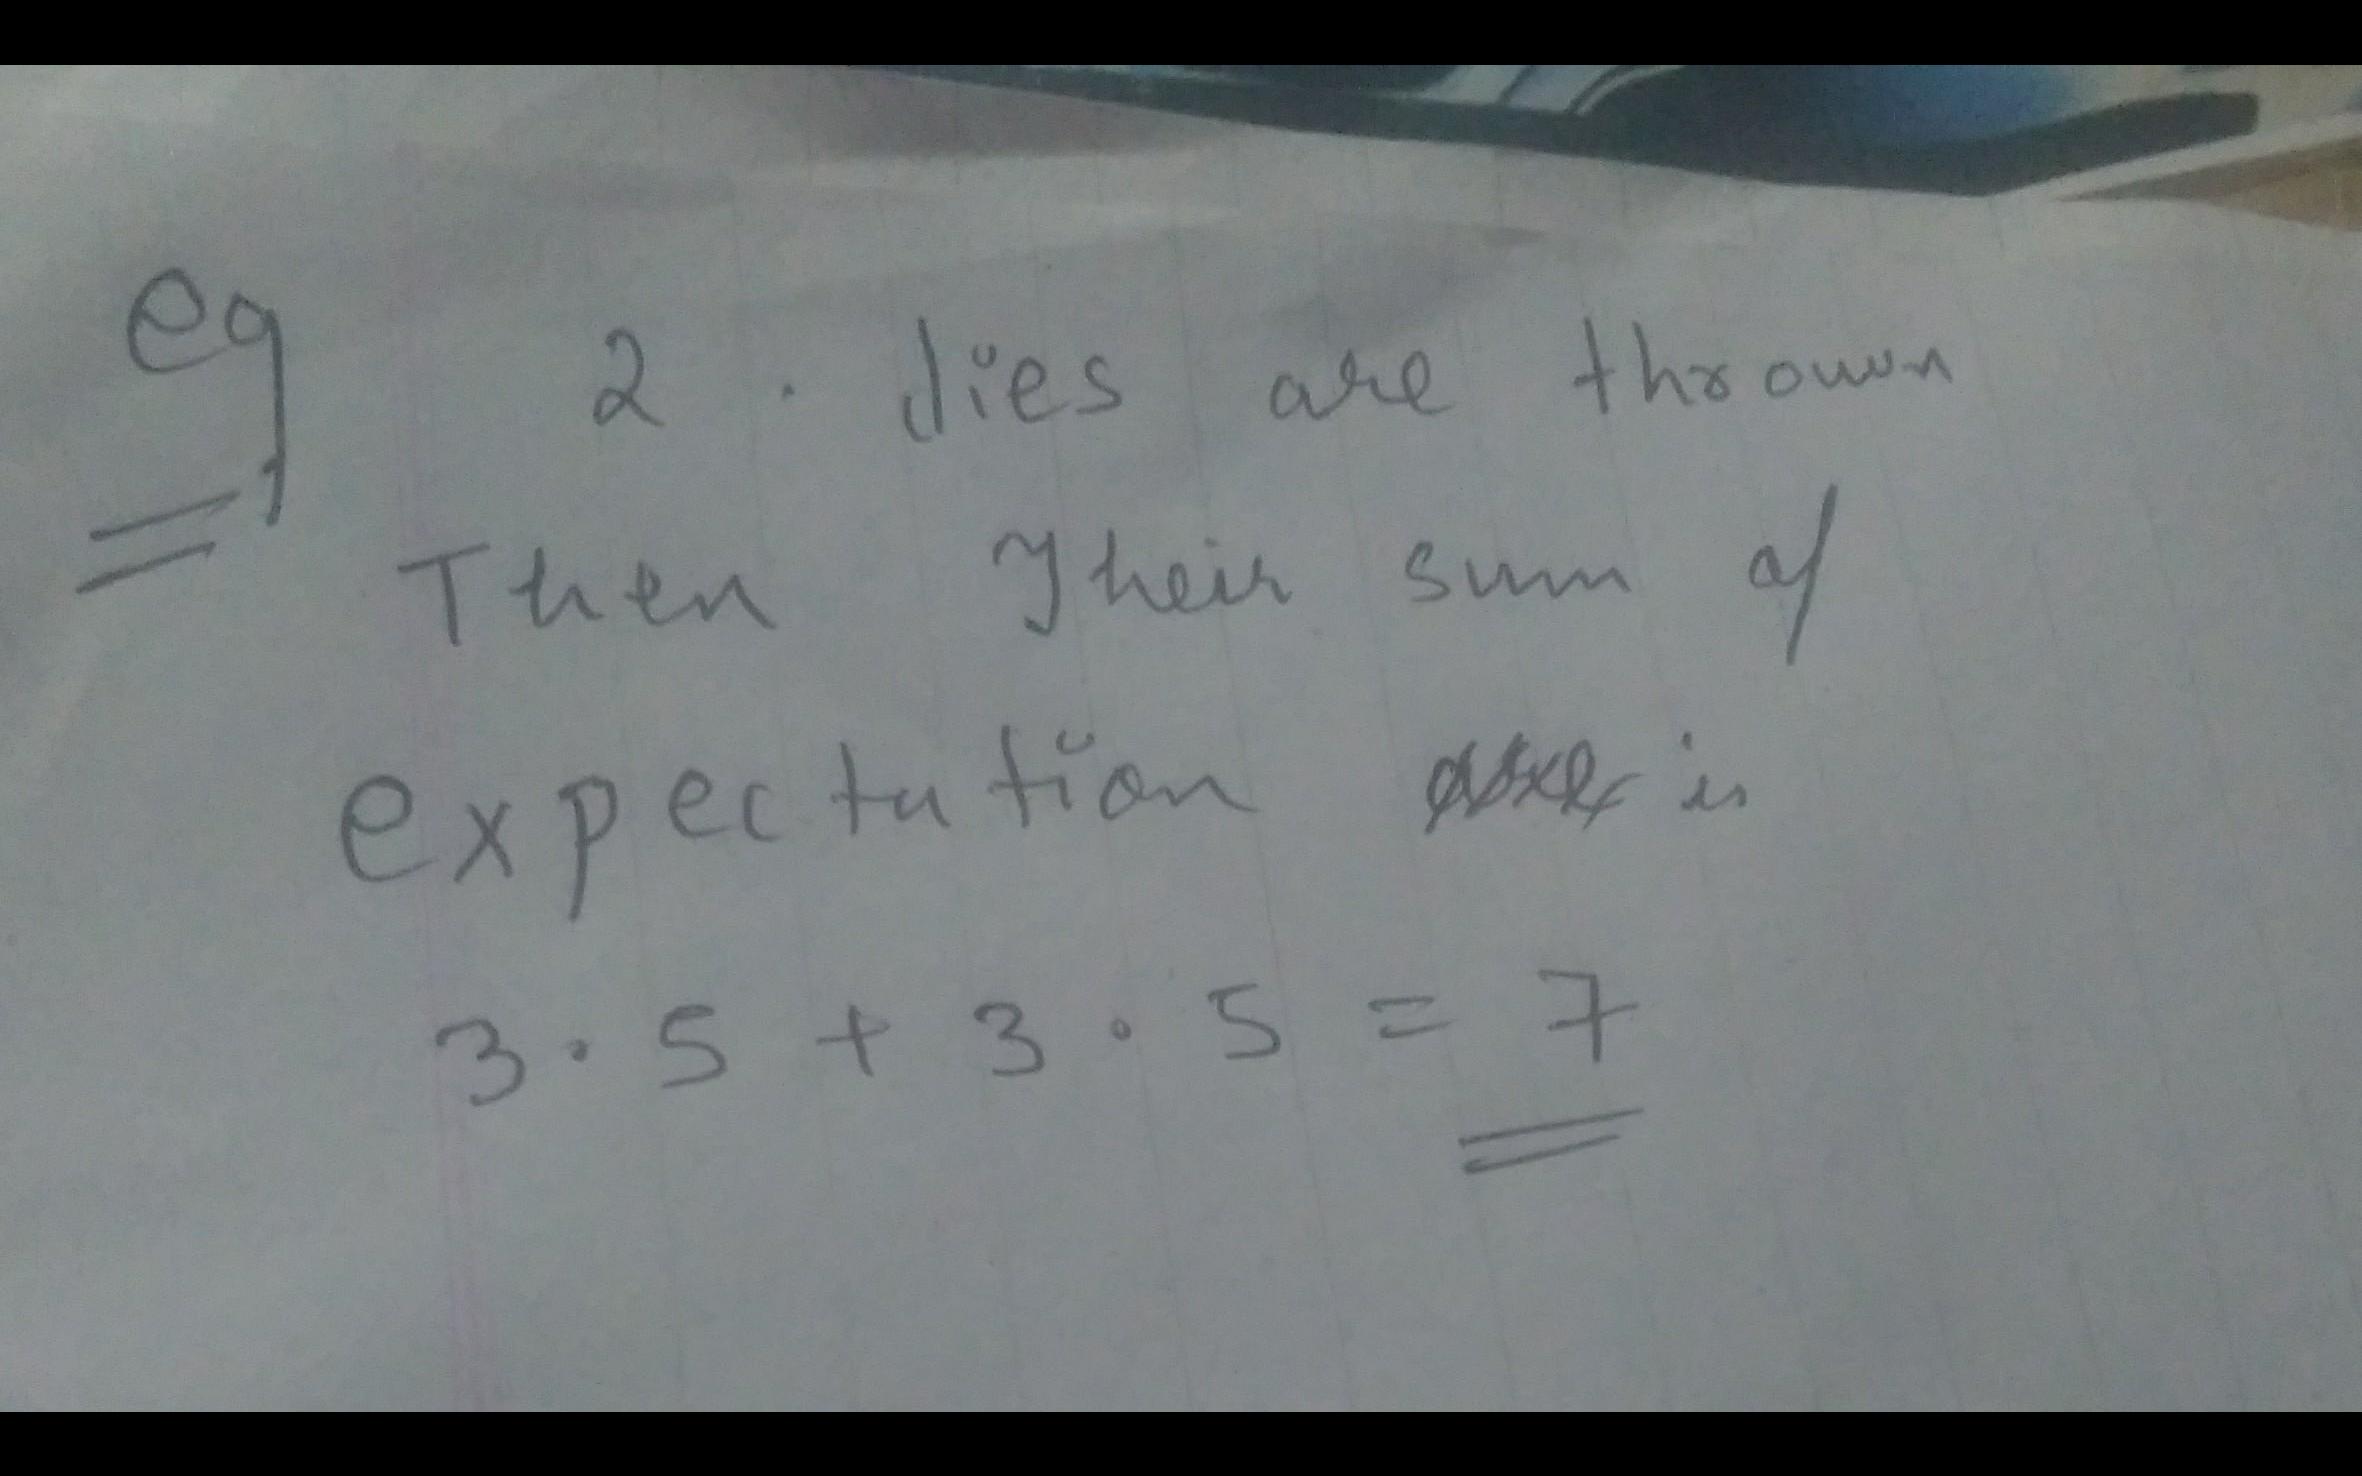 eg 2 dies are thrown
Then Their sum of
expectation is
3.5 + 3.5 = 7